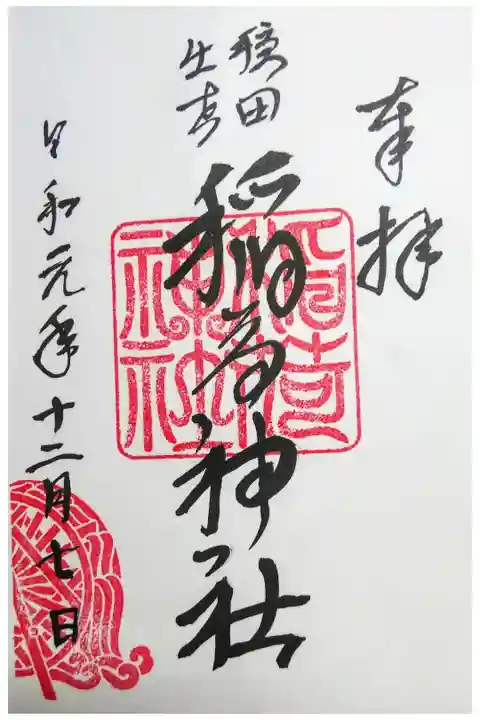 奉拝
田
稲荷神社
稲荷神社
令和元年十二月七日